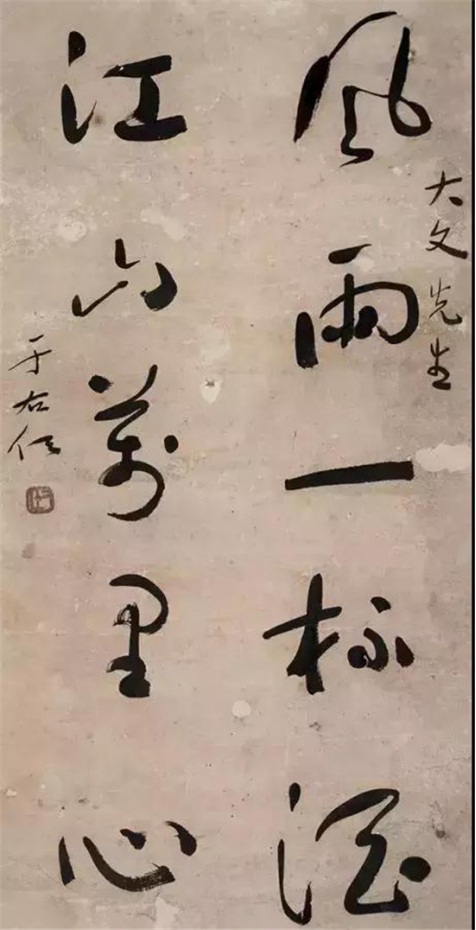 大文先生
風雨一杯酒
江山萬里心
于右任